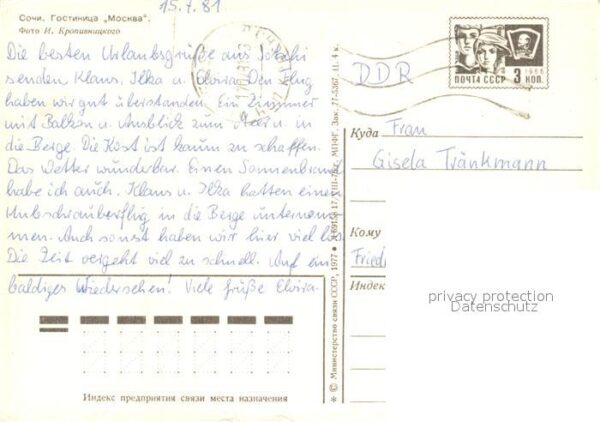 15.7.81
Сочи. Гостиница „Москва".
Фото И. Кропивницкого
Die besten Urlaubsgrüße aus
senden Klaus, Ilka u. Elvira. Den Flug
haben wir gut überstanden. Ein Zimmer
mit Balkon u. Ausblick zum Meer u. in
die Berge. Die Kost ist kaum zu schaffen.
Das Wetter wunderbar. Einen Sonnenbrand
habe ich auch. Klaus u. Ilka hatten einen
Hubschrauberflug in die Berge unternom
men. Auch sonst haben wir hier viel los.
Die Zeit vergeht viel zu schnell. Auf ein
baldiges Wiedersehen! Viele Grüße Elvira.
Индекс предприятия связи места назначения
* © Министерство связи СССР, 1977 * А 69158 17. VIII-77 г. МПФГ. Зак. 77-5367. Ц. 4 к.
ПОЧТА СССР 3 КОП.
1966
DDR
Куда Frau
Gisela Tränkmann
Кому
Fried
Индек
privacy protection
Datenschutz